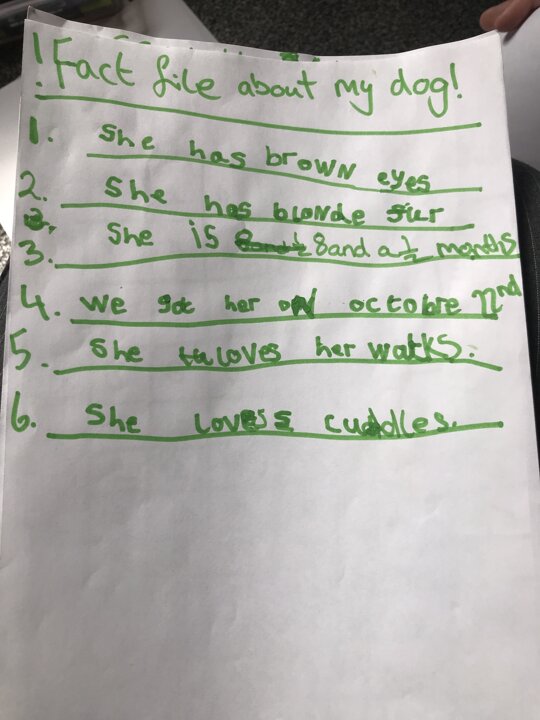 ! Fact file about my dog!
1. She has brown eyes
2. She has blonde fur
3. She is 8 and a 1/2 months
4. We got her on octobre 22nd
5. She loves her walks.
6. She loves cuddles.